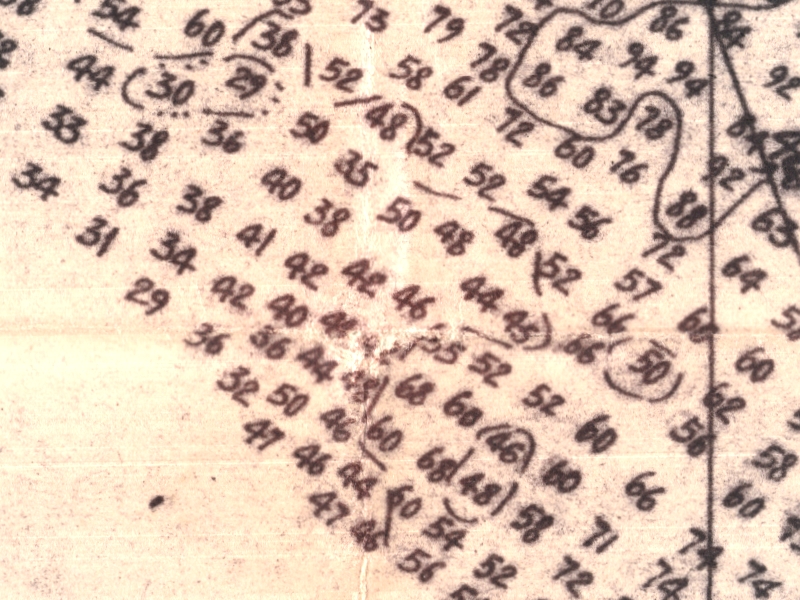 54 60 38 73 79 72 86 84
44 30 29 52 58 61 78 86 84 94 94 92
33 38 36 50 48 52 72 83 78
34 36 38 40 35 52 54 60 76 92
31 34 41 38 50 48 48 56 88 63
29 42 42 42 46 44 52 57 72 64
36 40 45 66
36 44 52 66 50 60
32 50 46 68 60 52 62
47 46 44 60 68 46 60 56 58
47 46 60 48 60 66 60
54 58 71
56 52 72 74 74